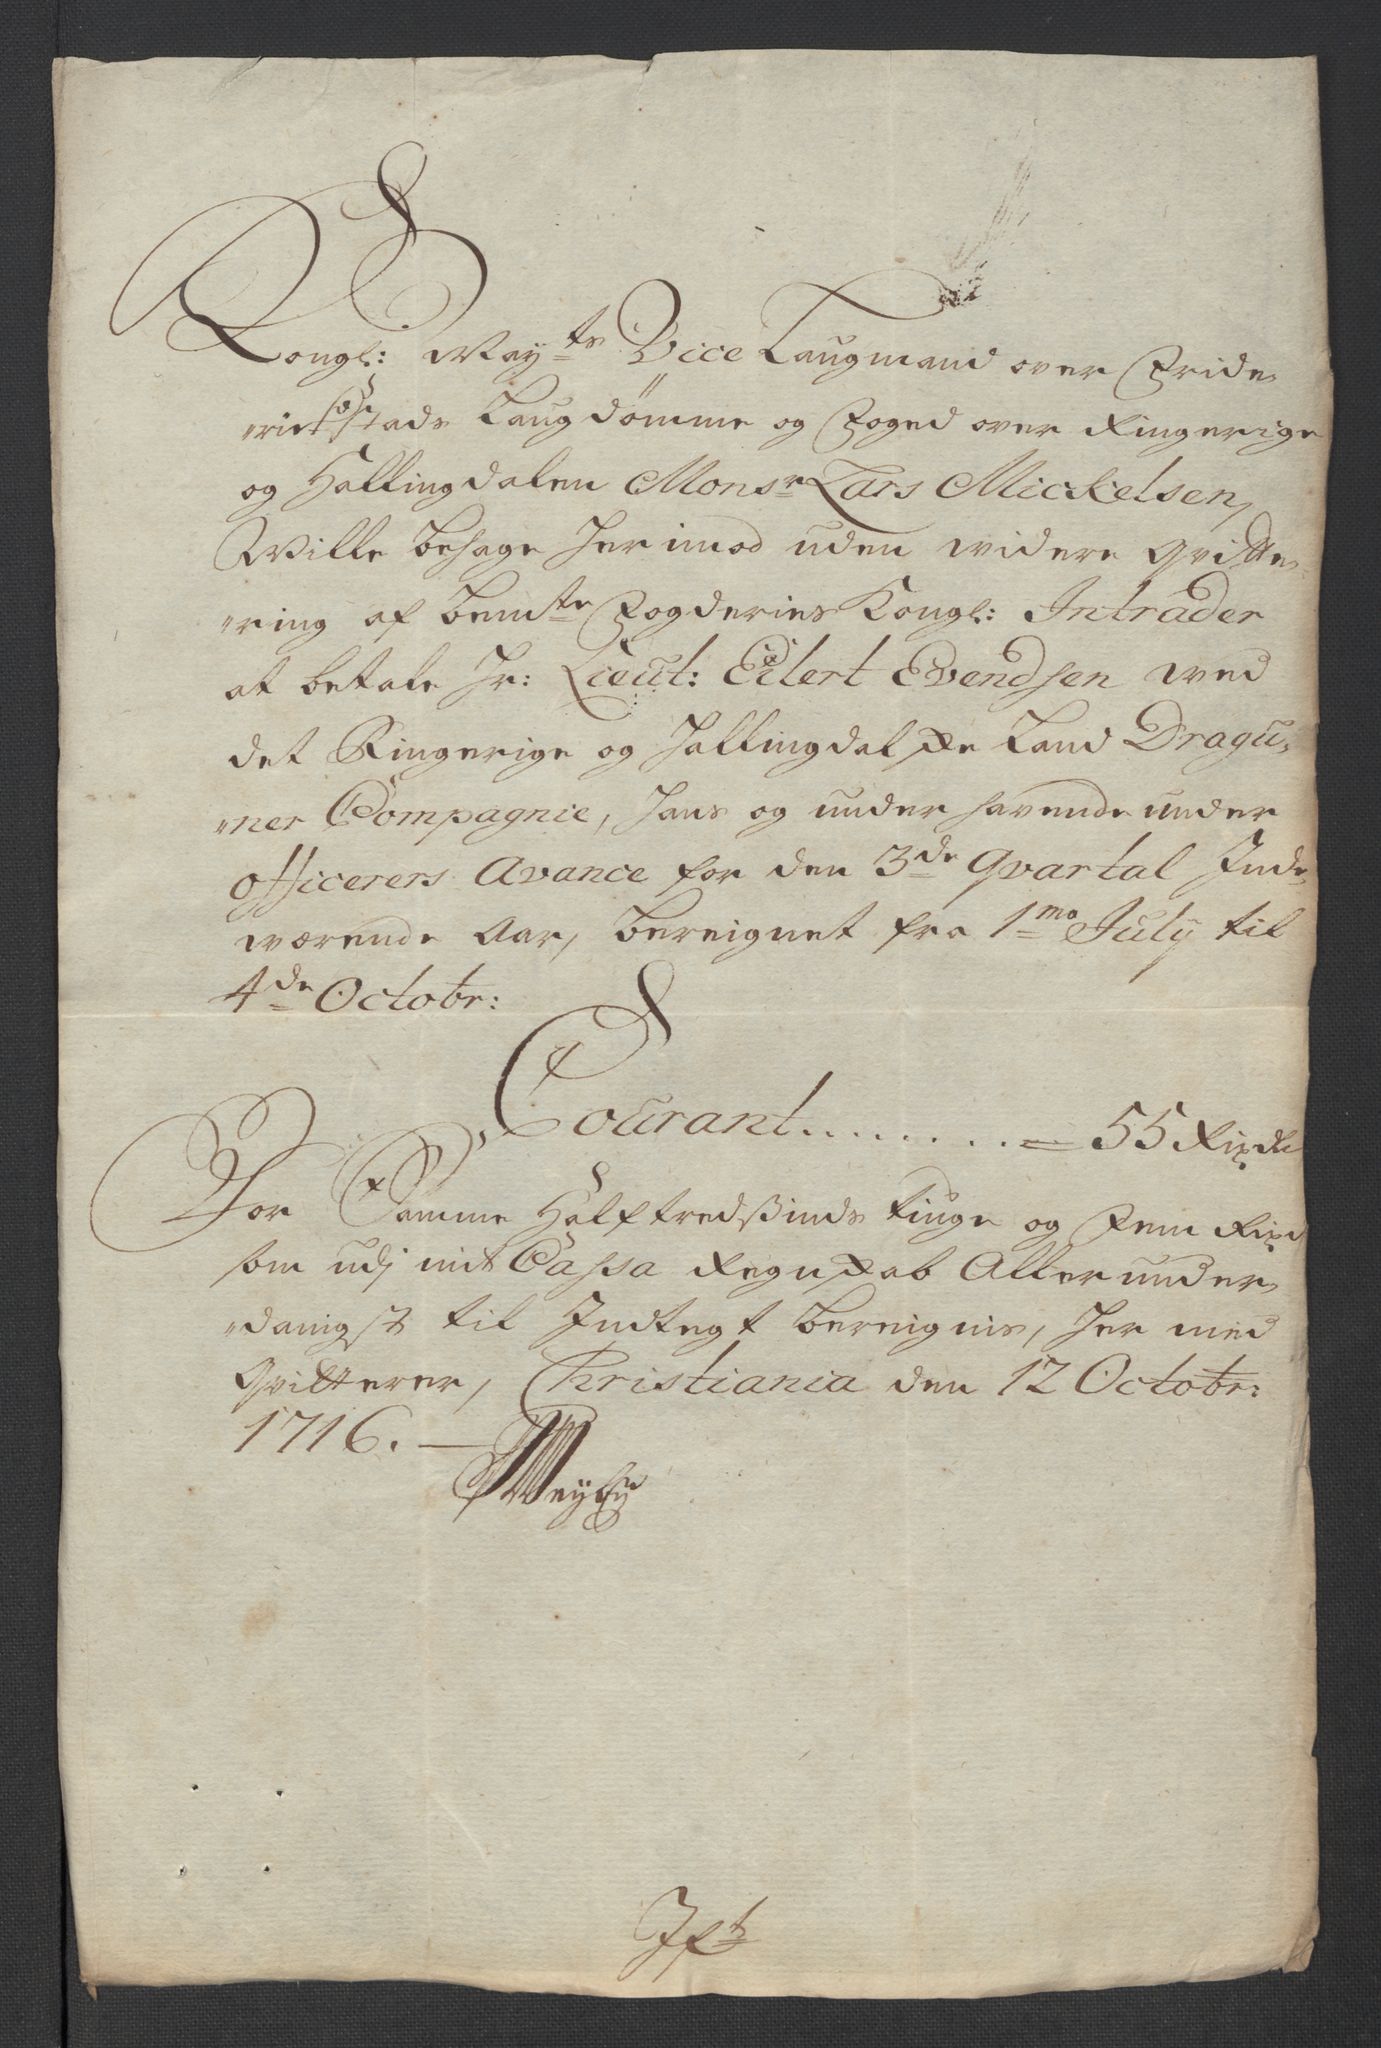 Kongl: May:ts Vice Laugmand over Fride„
„richstads Laugdømme og Foged over Ringerige
og Hallingdalen Monsr Lars Mickelsen,
Wille behage herimod uden widere qvitte„
„ring af bemte Fogderies Kongl: Intrader
at betale Hr: Lieut: Eilert Evendsen wed
det Ringerige og Hallingdalske Land Dragu„
„ner Compagnie, hans og underhavende under
officerers Avance for den 3de Qvartal Inde„
værende Aar, bereignet fra 1mo July til
4de Octobr:
Courant ......... = 55 Rixdr
For Samme Halftredsinds tiuge og Fem Rixd
som udj mit Cassa Regnskab Allerunder„
„danigst til Indtegt bereignis, her med
qvitterer, Christiania den 12 Octobr:
1716. —